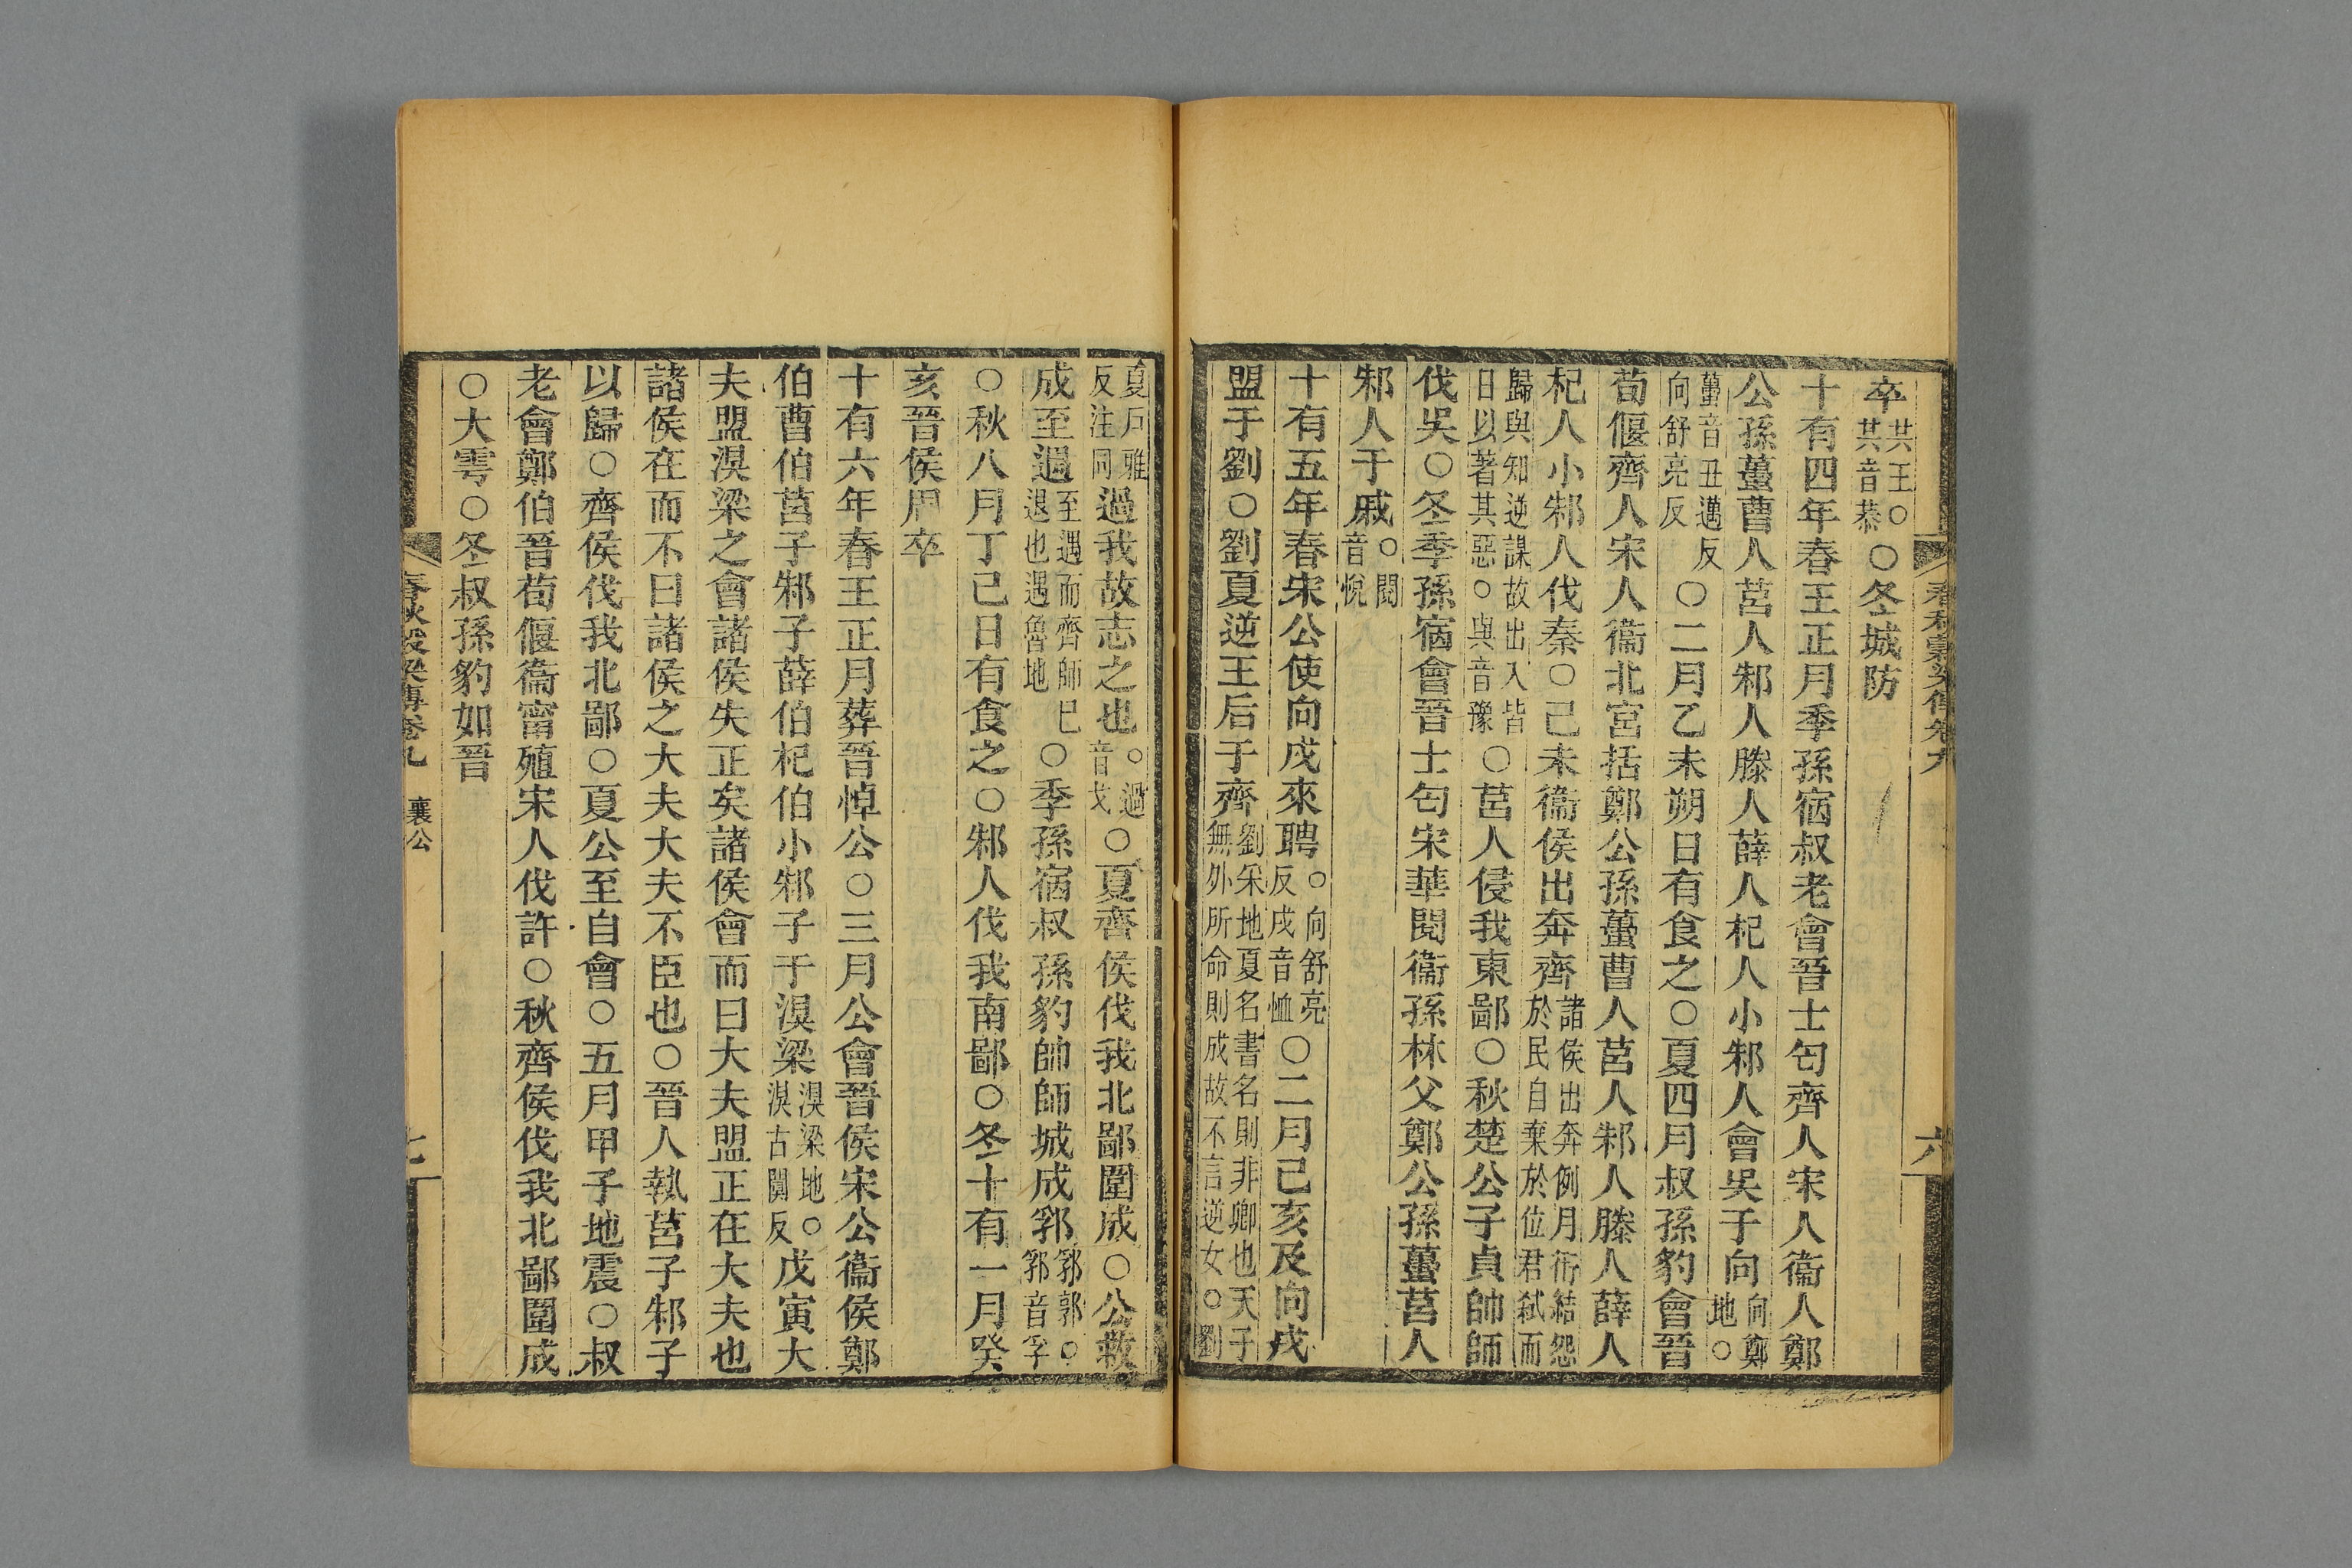 春秋穀梁傳卷九
六
卒共王○共音恭○冬城防
十有四年春王正月季孫宿叔老會晉士匄齊人宋人衞人鄭
公孫蠆曹人莒人邾人滕人薛人杞人小邾人會吳于向向鄭地○
蠆音丑邁反向舒亮反○二月乙未朔日有食之○夏四月叔孫豹會晉
荀偃齊人宋人衞北宮括鄭公孫蠆曹人莒人邾人滕人薛人
杞人小邾人伐秦○己未衞侯出奔齊諸侯出奔例月衎結怨於民自棄於位君弑而
歸與知逆謀故出入皆日以著其惡○與音豫○莒人侵我東鄙○秋楚公子貞帥師
伐吳○冬季孫宿會晉士匄宋華閱衞孫林父鄭公孫蠆莒人
邾人于戚○閱音悅
十有五年春宋公使向戌來聘○向舒亮反戌音恤○二月己亥及向戌
盟于劉○劉夏逆王后于齊劉采地夏名書名則非卿也天子無外所命則成故不言逆女○劉
夏戶雅反注同過我故志之也○過音戈○夏齊侯伐我北鄙圍成○公救
成至遇至遇而齊師已退也遇魯地○季孫宿叔孫豹帥師城成郛郛郭○郛音孚
○秋八月丁巳日有食之○邾人伐我南鄙○冬十有一月癸
亥晉侯周卒
十有六年春王正月葬晉悼公○三月公會晉侯宋公衞侯鄭
伯曹伯莒子邾子薛伯杞伯小邾子于湨梁湨梁地○湨古闃反戊寅大
夫盟湨梁之會諸侯失正矣諸侯會而曰大夫盟正在大夫也
諸侯在而不曰諸侯之大夫大夫不臣也○晉人執莒子邾子
以歸○齊侯伐我北鄙○夏公至自會○五月甲子地震○叔
老會鄭伯晉荀偃衞甯殖宋人伐許○秋齊侯伐我北鄙圍成
○大雩○冬叔孫豹如晉
春秋穀梁傳卷九 襄公
七